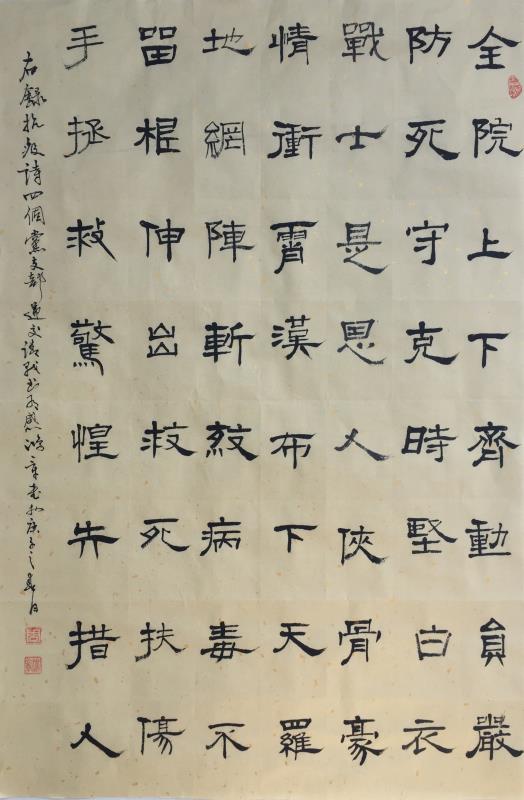 全院上下齊動員嚴
防死守克時堅白衣
戰士是恩人俠骨豪
情衝霄漢布下天羅
地網陣斬殺病毒不
留根伸出救死扶傷
手拯救驚惶失措人
右錄抗疫詩四個黨支部遞交請戰書有感鴻章書於庚子之春日